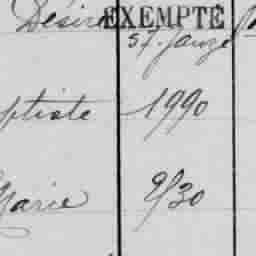 Désiré EXEMPTÉ
57. Janze
ptiste 1990
Marie 9/30